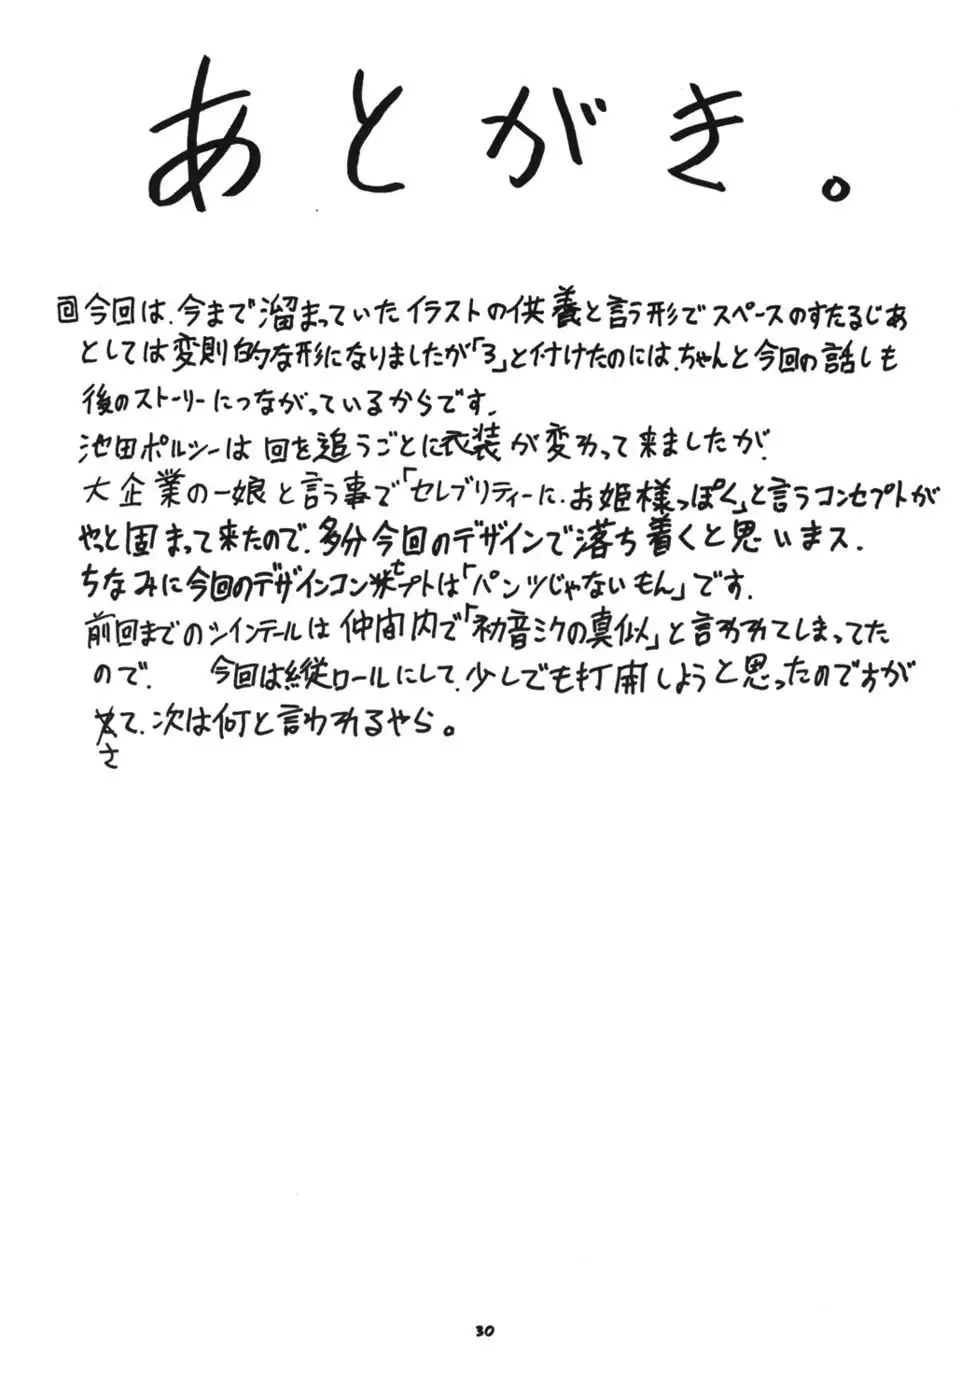 あとがき。
回今回は、今まで溜まっていたイラストの供養と言う形でスペースのすたるじあ
としては変則的な形になりましたが「3」と付けたのには、ちゃんと今回の話しも
後のストーリーにつながっているからです。
池田ポルシーは回を追うごとに衣装が変わって来ましたが、
大企業の一娘と言う事で「セレブリティーに、お姫様っぽく」と言うコンセプトが
やっと固まって来たので、多分今回のデザインで落ち着くと思いまス。
ちなみに今回のデザインコンセプトは「パンツじゃないもん」です。
前回までのツインテールは仲間内で「初音ミクの真似」と言われてしまってた
ので、 今回は縦ロールにして、少しでも打開しようと思ったのですが
さて、次は何と言われるやら。
30